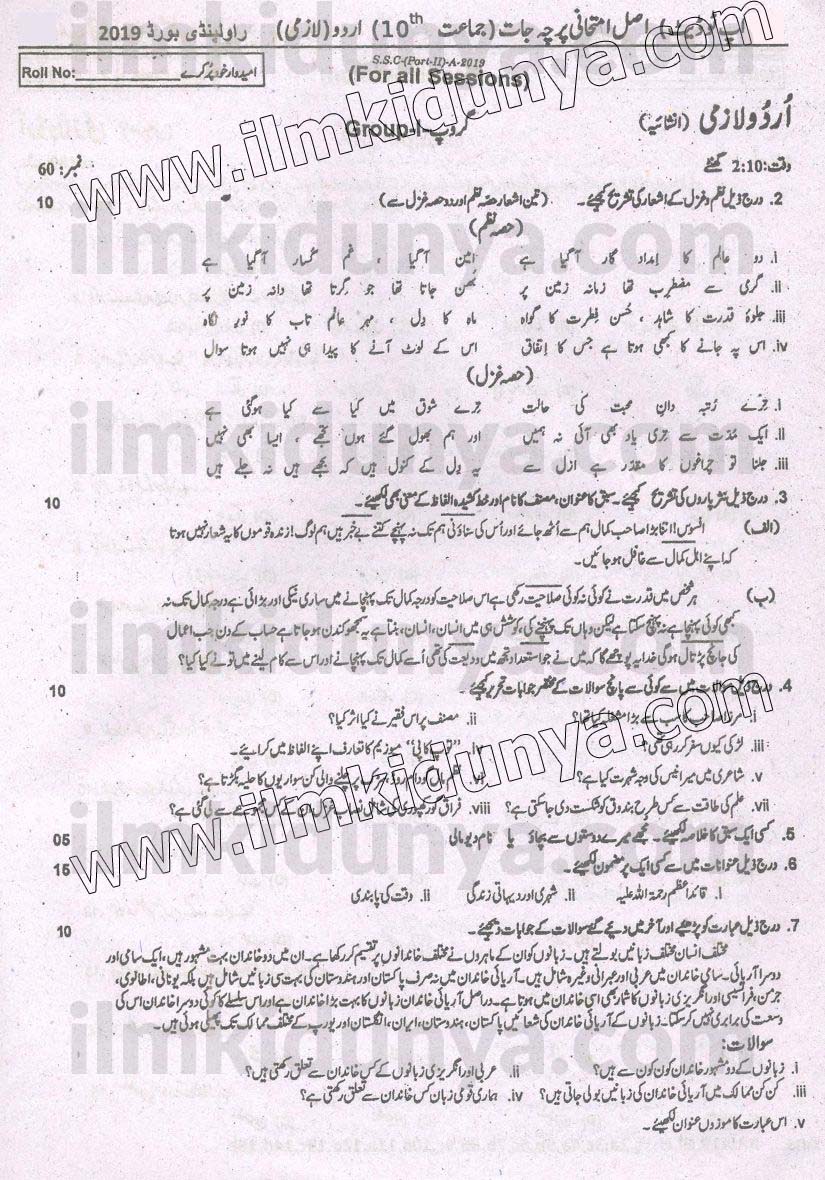 اپ ٹو ڈیٹ / اصل امتحانی پرچہ جات (جماعت 10th) اردو (لازمی) راولپنڈی بورڈ 2019
Roll No: امیدوار خود پُر کرے
S.S.C-(Part-II)-A-2019
(For all Sessions)
اُردُو لازمی (انشائیہ) گروپ-Group-I
وقت: 2:10 گھنٹے نمبر: 60
2. درج ذیل نظم و غزل کے اشعار کی تشریح کیجئے۔ (تین اشعار حصہ نظم اور دو حصہ غزل سے) 10
(حصہ نظم)
i. دو عالم کا امداد گار آگیا ہے امین آگیا ، غم گسار آگیا ہے
ii. گرمی سے مضطرب تھا زمانہ زمین پر بُھن جاتا تھا جو گرتا تھا دانہ زمین پر
iii. جلوۂ قدرت کا شاہد ، حُسنِ فطرت کا گواہ ماہ کا دِل ، مہرِ عالم تاب کا نورِ نگاہ
iv. اس پہ جانے کا کبھی ہوتا ہے جس کا اِتفاق اس کے لوٹ آنے کا پیدا ہی نہیں ہوتا سوال
(حصہ غزل)
i. ترے رُتبہ دانِ محبت کی حالت ترے شوق میں کیا سے کیا ہوگئی ہے
ii. ایک مُدّت سے تری یاد بھی آئی نہ ہمیں اور ہم بھول گئے ہوں تجھے ، ایسا بھی نہیں
iii. جلنا تو چراغوں کا مقدر ہے ازل سے یہ دِل کے کنول ہیں کہ بجھے ہیں نہ جلے ہیں
3. درج ذیل نثر پاروں کی تشریح کیجئے۔ سبق کا عنوان، مصنف کا نام اور خط کشیدہ الفاظ کے معنی بھی لکھیئے۔ 10
(الف) افسوس! اتنا بڑا صاحب کمال ہم سے اُٹھ جائے اور اُس کی سناؤنی ہم تک نہ پہنچے کتنے بے خبر ہیں ہم لوگ! زندہ قوموں کا یہ شعار نہیں ہوتا
کہ اپنے اہل کمال سے غافل ہوجائیں۔
(ب) ہر شخص میں قدرت نے کوئی نہ کوئی صلاحیت رکھی ہے اس صلاحیت کو درجہ کمال تک پہنچانے میں ساری نیکی اور بڑائی ہے درجہ کمال تک نہ
کبھی کوئی پہنچا ہے نہ پہنچ سکتا ہے لیکن وہاں تک پہنچنے کی کوشش ہی میں انسان، انسان، بنتا ہے یہ سمجھو کندن ہوجاتا ہے حساب کے دن جب اعمال
کی جانچ پڑتال ہوگی خدا یہ پوچھے گا کہ میں نے جو استعداد تجھ میں ودیعت کی تھی اُسے کمال تک پہنچانے اور اس سے کام لینے میں تو نے کیا کیا؟
4. درج ذیل سوالات میں سے کوئی سے پانچ سوالات کے مختصر جوابات تحریر کیجئے۔ 10
i. مرزا صاحب کا سب سے بڑا مشغلہ کیا تھا؟ ii. مصنف پر اس فقیر نے کیا اثر کیا؟
iii. لڑکی کیوں سفر کر رہی تھی؟ iv. "توپ کاپی" میوزیم کا تعارف اپنے الفاظ میں کرائیے۔
v. شاعری میں میر انیس کی وجہ شہرت کیا ہے؟ vi. نظم مال گودام روڈ سڑک پر چلنے والی کن سواریوں کا حلیہ بگڑتا ہے؟
vii. علم کی طاقت سے کس طرح بندوق کو شکست دی جاسکتی ہے؟ viii. فراق گورکھپوری کی شامل نصاب غزل ان کے کس مجموعے سے لی گئی ہے؟
5. کسی ایک سبق کا خلاصہ لکھیئے۔ مجھے میرے دوستوں سے بچاؤ یا نام دیو مالی 05
6. درج ذیل عنوانات میں سے کسی ایک پر مضمون لکھیئے۔ 15
i. قائداعظم رحمۃ اللہ علیہ ii. شہری اور دیہاتی زندگی ii. وقت کی پابندی
7. درج ذیل عبارت کو پڑھیے اور آخر میں دیے گئے سوالات کے جوابات دیجئیے۔ 10
مختلف انسان مختلف زبانیں بولتے ہیں۔ زبانوں کو ان کے ماہروں نے مختلف خاندانوں پر تقسیم کر رکھا ہے۔ ان میں دو خاندان بہت مشہور ہیں، ایک سامی اور
دوسرا آریائی۔ سامی خاندان میں عربی اور عبرانی وغیرہ شامل ہیں۔ آریائی خاندان میں نہ صرف پاکستان اور ہندوستان کی بہت سی زبانیں شامل ہیں بلکہ یونانی، اطالوی،
جرمن، فرانسیسی اور انگریزی زبانوں کا شمار بھی اسی خاندان میں ہوتا ہے۔ دراصل آریائی خاندان زبانوں کا بہت بڑا خاندان ہے اور اس سلسلے کا کوئی دوسرا خاندان اس کی
وسعت کی برابری نہیں کرسکتا۔ زبانوں کے آریائی خاندان کی شعائیں پاکستان، ہندوستان، ایران، انگلستان اور یورپ کے مختلف ممالک تک پھیلی ہوئی ہیں۔
سوالات:
i. زبانوں کے دو مشہور خاندان کون کون سے ہیں؟ ii. عربی اور انگریزی زبانوں کے کس خاندان سے تعلق رکھتی ہیں؟
iii. کن کن ممالک میں آریائی خاندان کی زبانیں بولی جاتی ہیں؟ iv. ہماری قومی زبان کس خاندان سے تعلق رکھتی ہے؟
v. اس عبارت کا موزوں عنوان لکھیئے۔
www.ilmkidunya.com
www.ilmkidunya.com
ilmkidunya.com
ilmkidunya.com
ilmkidunya.com
ilmkidunya.com
ilmkidunya.com